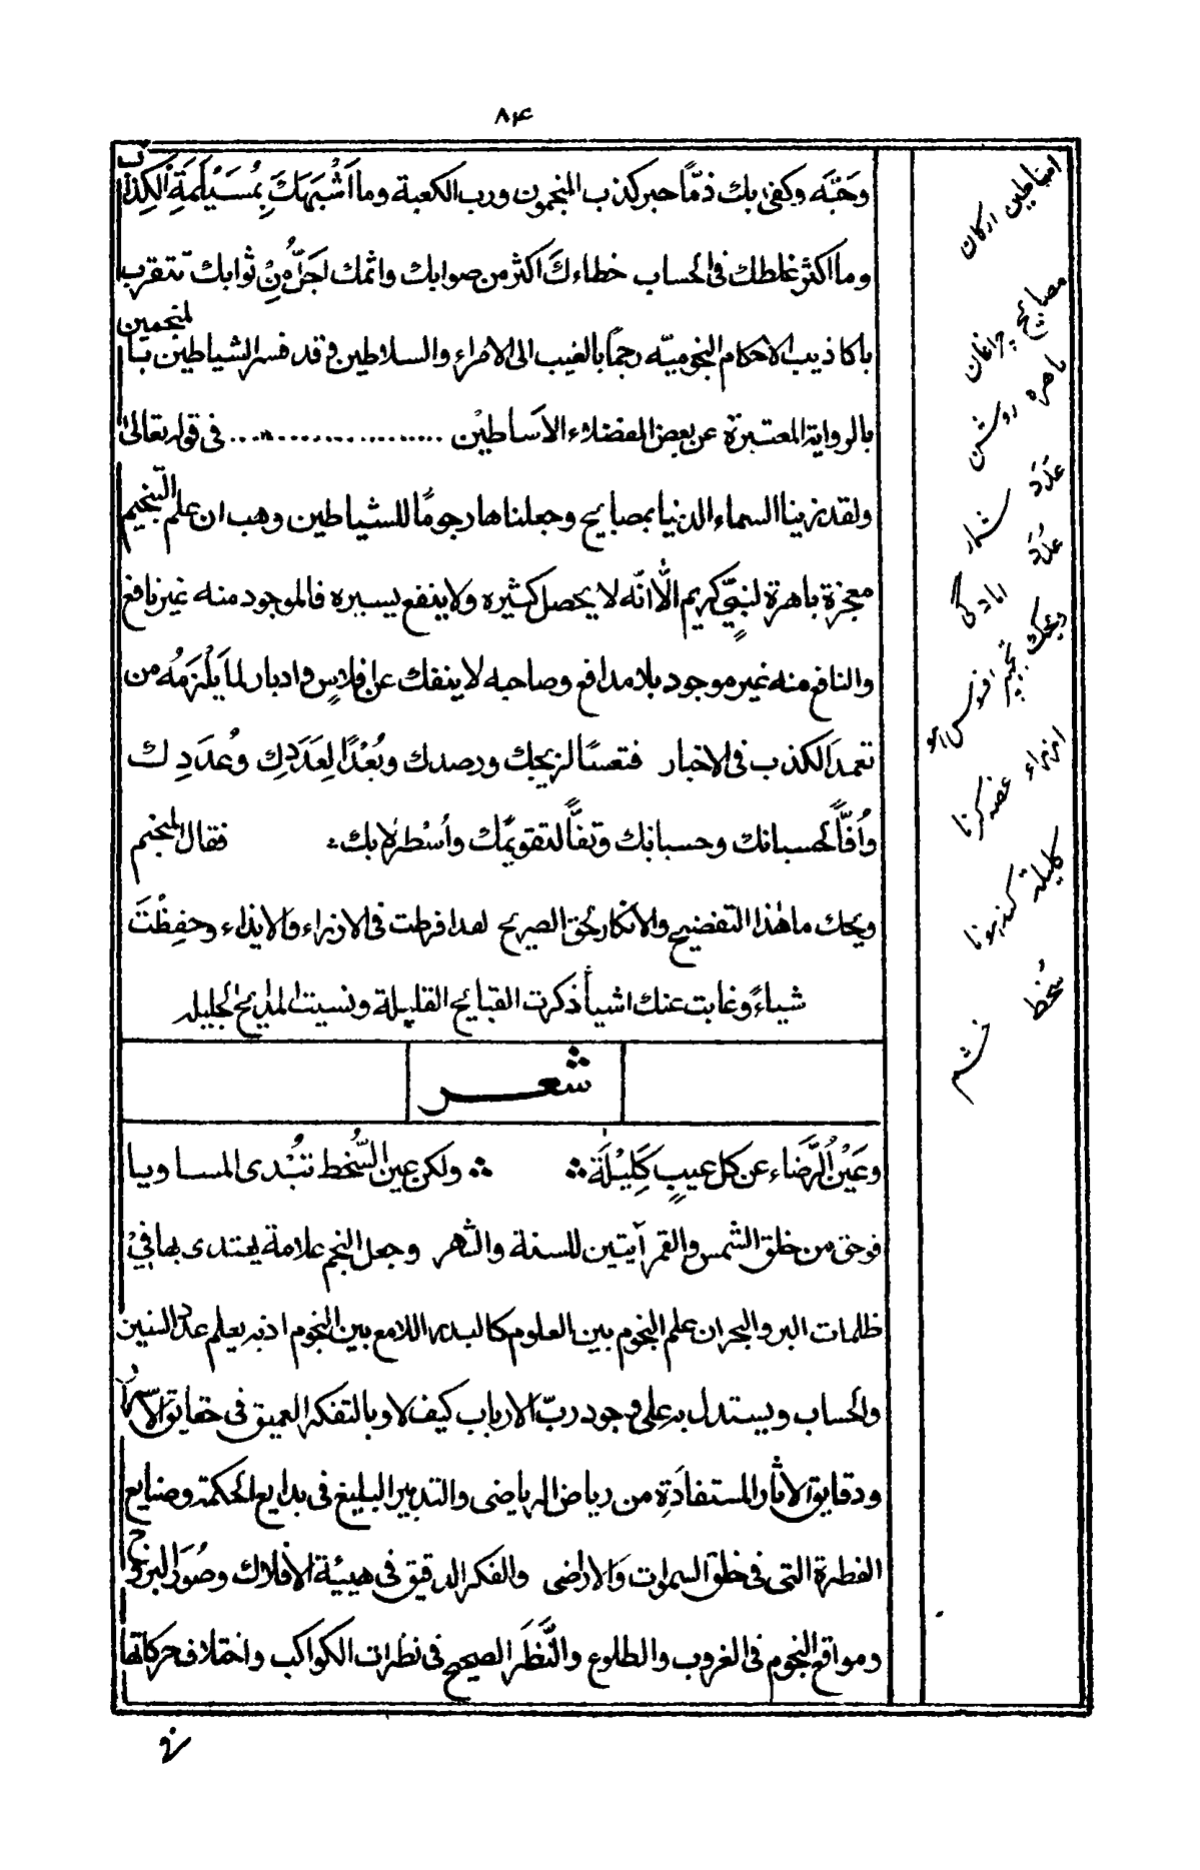 ۸۴
وحَبّه وكفى بك ذمّا حبر كذب المنجمون ورب الكعبة وما اَشْبَهَكَ بِمُسَيْلَمَةِ الكِذاب
وما اكثر غلطك فى الحساب خطاءكَ اكثر من صوابك واثمك اجَلُّ مِنْ ثوابك تتقرب
باكاذيب الاحكام النجوميّه رجمًا بالغيب الى الامراء والسلاطين وقد فسر الشياطين بالمنجمين
بالرواية المعتبرة عن بعض الفضلاء الاَساطيْن ........................ فى قوله تعالىٰ
ولقد زينا السماء الدنيا بمصابيح وجعلناها رجومًا للشياطين وهب ان علم التّنجيم
معجزة باهرة لنبيٍّ كريم الّا انّه لا يحصل كثيره ولا ينفع يسيره فالموجود منه غير نافع
والنافع منه غير موجود بلا مدافع وصاحبه لا ينفك عن افلاسٍ وادبار لما يَلْزَمُه من
تعمد الكذب فى الاخبار فتعسًا لزيجك ورصدك وبُعْدًا لِعَدَدِك وعُدَدِ ك
واُفًّا لحسبانك وحسبانك وتفًّا لتقويمك واُسْطرلابك فقال المنجم
ويحك ما هٰذا التفضيح والانكار لحق الصريح لقد افرطت فى الازراء والايذاء وحفِظْتَ
شياءً وغابت عنك اشيأ ذكرت القبايح القليلة ونسيت المدايح الجليله
شعر
وعَيْنُ الرَّضاء عن كل عيبٍ كَلِيْلَة ولكن عين السُّخط تُبْدى المساويا
فوحق من خلق الشمس والقمر آيتين للسنة والشهر وجعل النجم علامة يهتدى بها فِيْ
ظلمات البر والبحر ان علم النجوم بين العلوم كالبدر اللامع بين النجوم اذ به يعلم عدد السنين
والحساب ويستدل به على وجود ربّ الارباب كيف لا وبالتفكر العميق فى حقايق الاسرار
ودقايق الاثار المستفادَةِ من رياض الرياضى والتدبير البليغ فى بدايع الحكمة وصنايع
الفطرة التى فى خلق السموات وَالارَاضى والفكر الدقيق فى هيئة الافلاك وصُوَر البروج
ومواقع النجوم فى الغروب والطلوع والنَّظَر الصحيح فى نظرات الكواكب واختلاف حركاتها
اساطين اركان
مصابيح چراغان
باهره روشن
عَدَد شمار
عدَد امادگى
ويحك
ازراء
كليلة
سُخط خشم